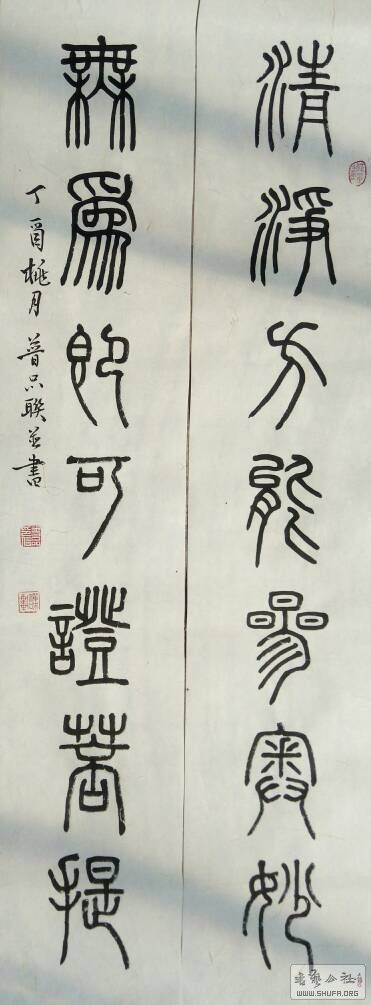 清淨方能參奧妙
無為即可證菩提
丁酉桃月普只聯並書
書藝公社
WWW.SHUFA.ORG